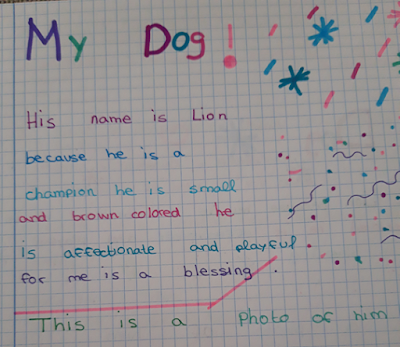 My Dog!
His name is Lion
because he is a
champion he is small
and brown colored he
is affectionate and playful
for me is a blessing.
This is a photo of him